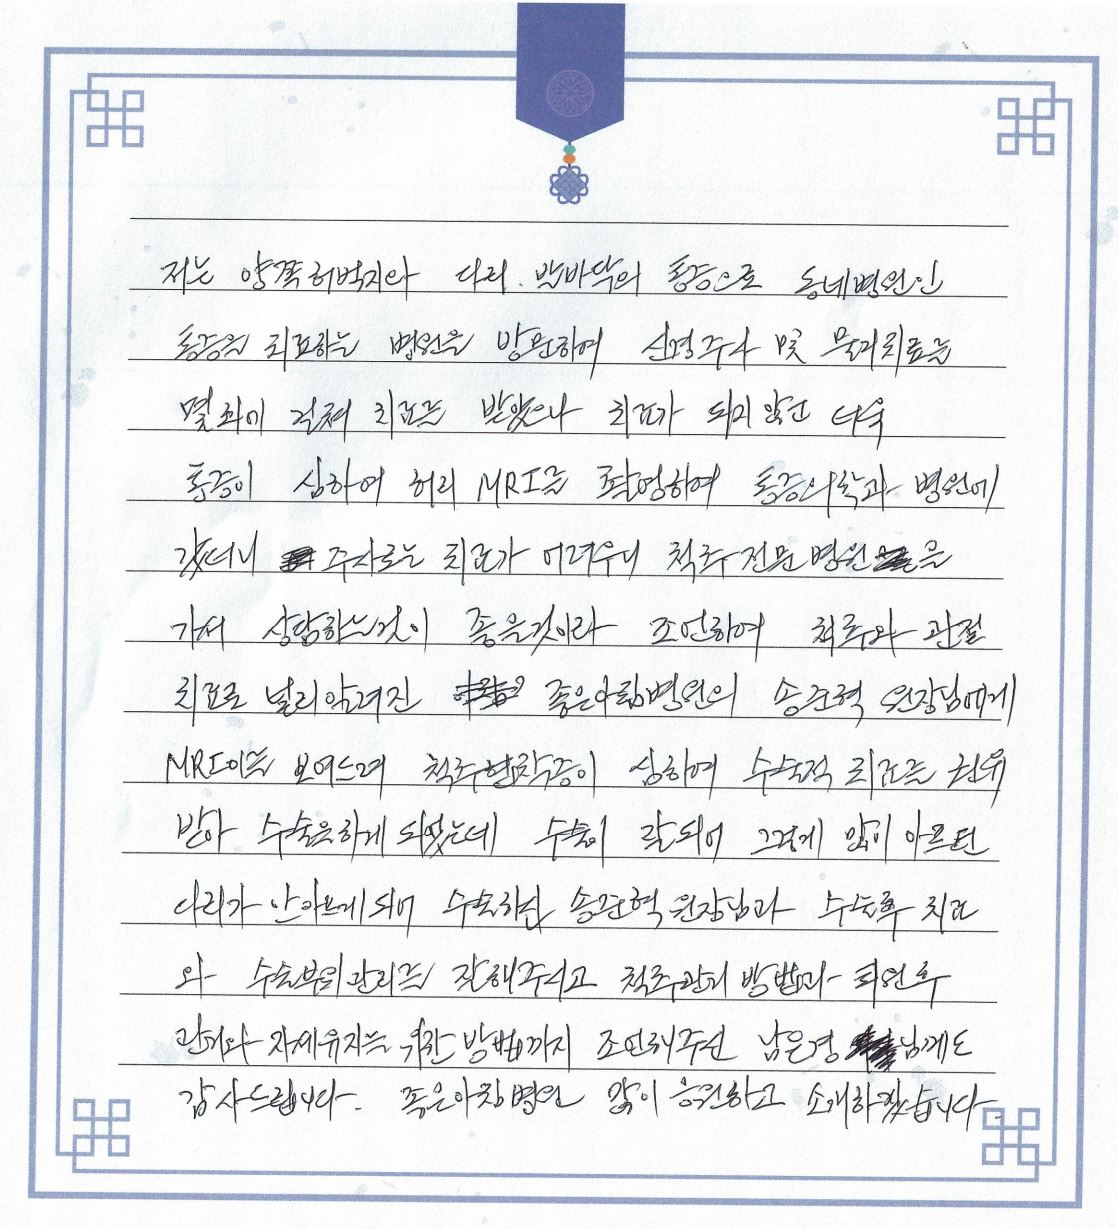 저는 양쪽허벅지와 다리. 발바닥의 통증으로 동네병원인
통증을 치료하는 병원을 방문하여 신경주사 및 물리치료를
몇 차례 걸쳐 치료를 받았으나 치료가 되지 않고 더욱
통증이 심하여 허리 MRI를 촬영하여 통증의학과 병원에
갔더니 주사로는 치료가 어려우니 척추전문병원을
가서 상담하는것이 좋을것이라 조언하여 척추와 관절
치료로 널리알려진 좋은아침병원의 송준혁 원장님에게
MRI이를 보여드려 척추협착증이 심하여 수술적 치료를 권유
받아 수술을하게 되었는데 수술이 잘되어 그렇게 많이 아프던
다리가 안아프게되어 수술하신 송준혁원장님과 수술후 치료
와 수술부위관리를 잘해주시고 척추관리 방법과 퇴원후
관리와 자세유지를 위한 방법까지 조언해주신 남은경 님께도
감사드립니다. 좋은아침병원 많이 응원하고 소개하겠습니다.